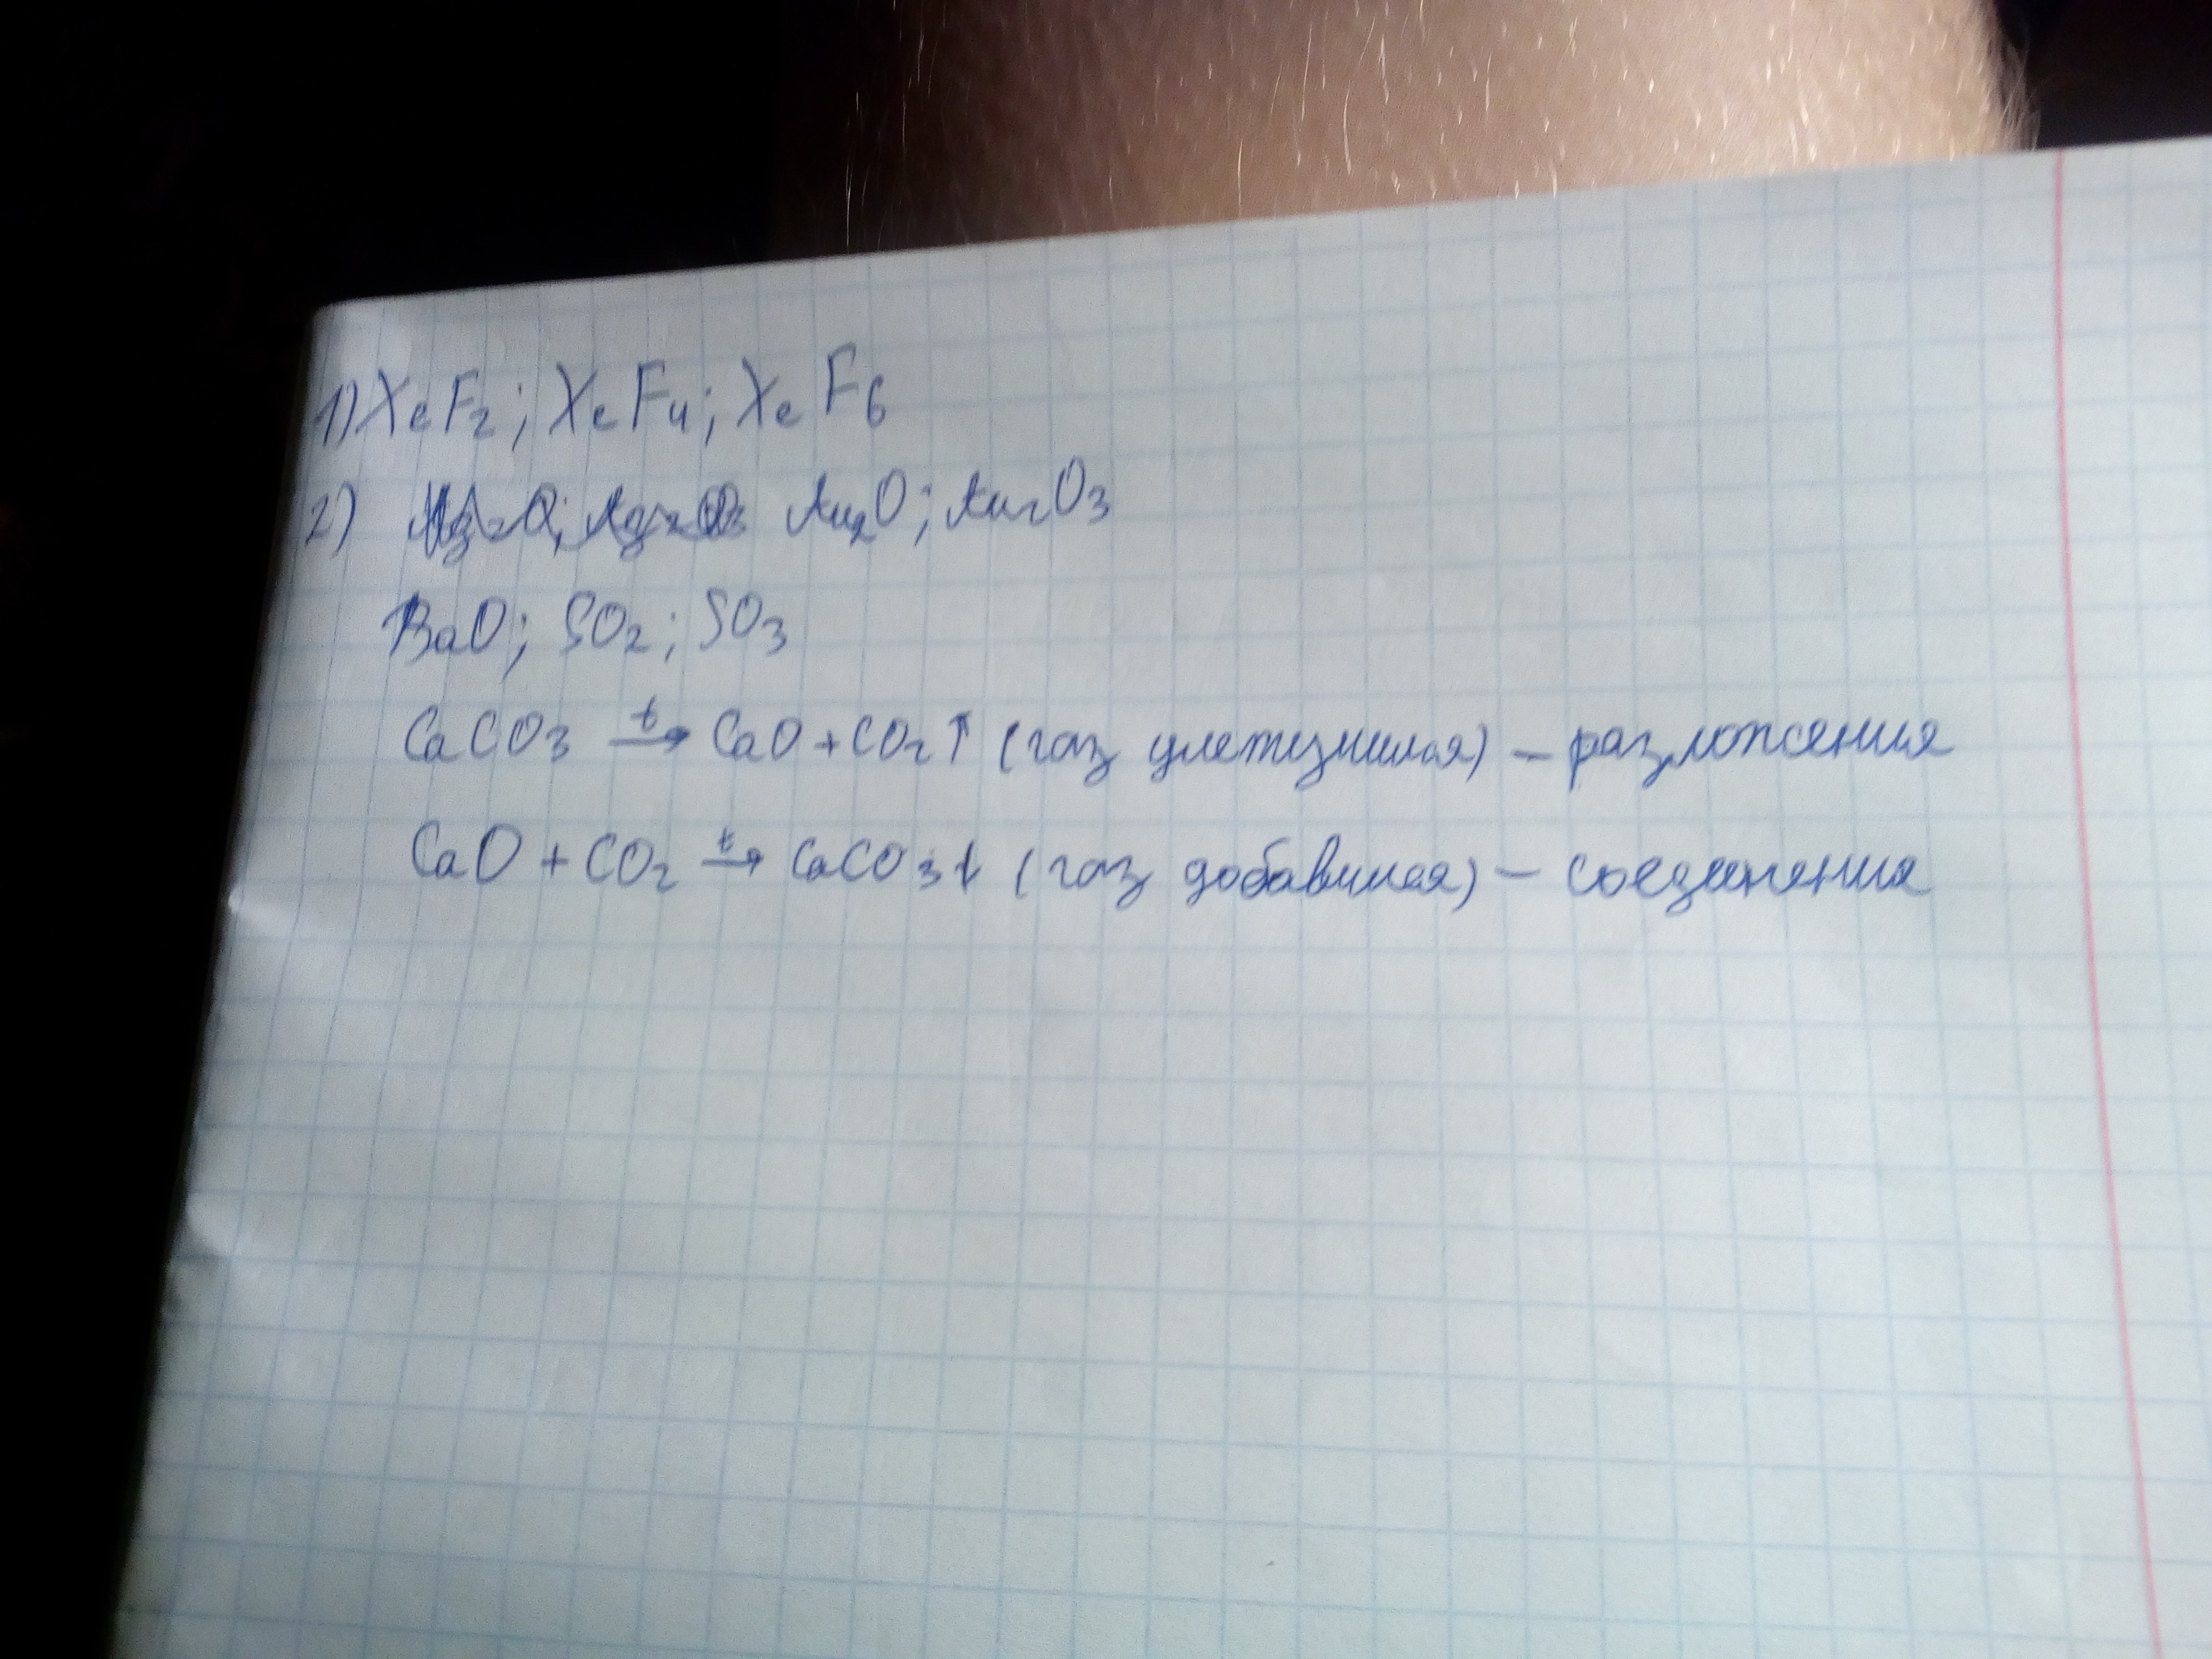 1) XeF2; XeF4; XeF6
2) Au2O; Au2O3
BaO; SO2; SO3
CaCO3 t→ CaO + CO2↑ (газ улетучился) – разложения
CaO + CO2 t→ CaCO3↓ (газ добавился) – соединения